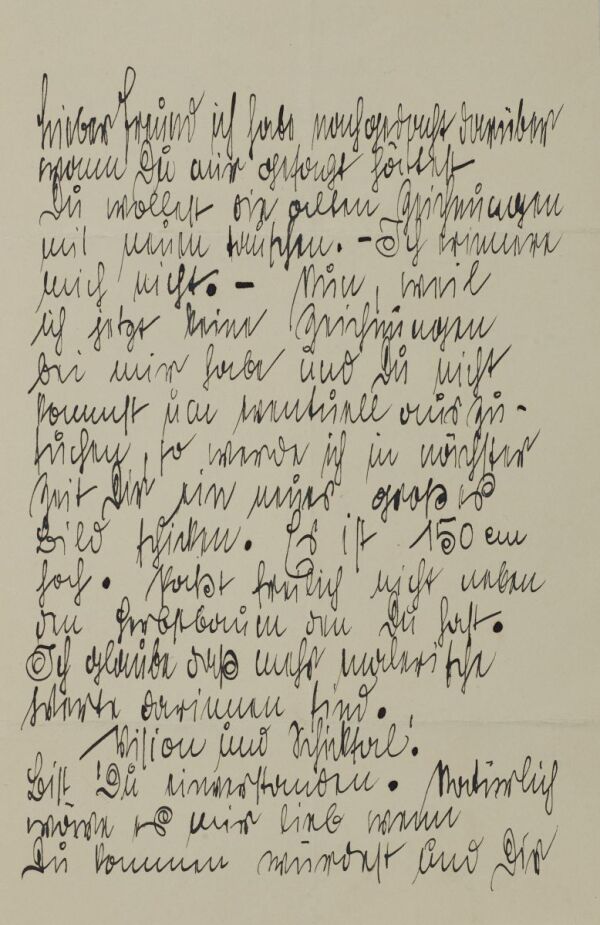 Lieber Freund ich habe nachgedacht darüber
wann Du mir gesagt hättest
Du wollest die alten Zeichnungen
mit neuen tauschen. – Ich erinnere
mich nicht. – Nun, weil
ich jetzt keine Zeichnungen
bei mir habe und Du nicht
kommst um eventuell auszu-
suchen, so werde ich in nächster
Zeit Dir ein neues großes
Bild schicken. Es ist 150 cm
hoch. Paßt freilich nicht neben
den Herbstbaum den Du hast.
Ich glaube daß mehr malerische
Werte darinnen sind.
"Vision und Schicksal."
Bist Du einverstanden. Natürlich
wäre es mir lieb wenn
Du kommen würdest und Dir